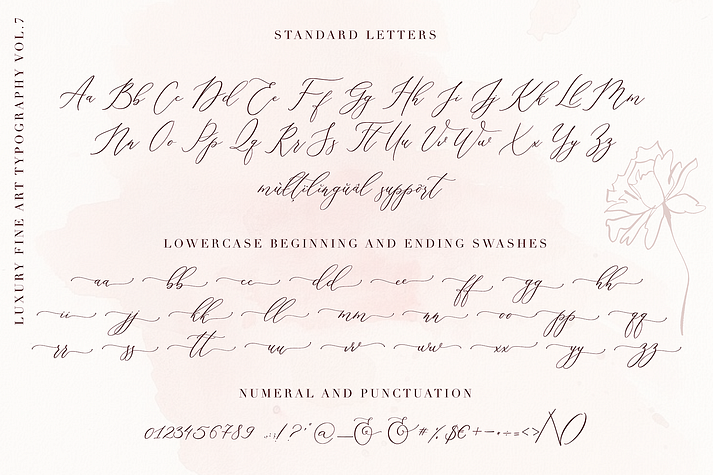 LUXURY FINE ART TYPOGRAPHY VOL.7
STANDARD LETTERS
Aa Bb Cc Dd Ee Ff Gg Hh Ii Jj Kk Ll Mm
Nn Oo Pp Qq Rr Ss Tt Uu Vv Ww Xx Yy Zz
multilingual support
LOWERCASE BEGINNING AND ENDING SWASHES
aa bb cc dd ee ff gg hh
ii jj kk ll mm nn oo pp qq
rr ss tt uu vv ww xx yy zz
NUMERAL AND PUNCTUATION
0123456789 .,:;!?"' @_&& #%$€+-·÷=<>/\()